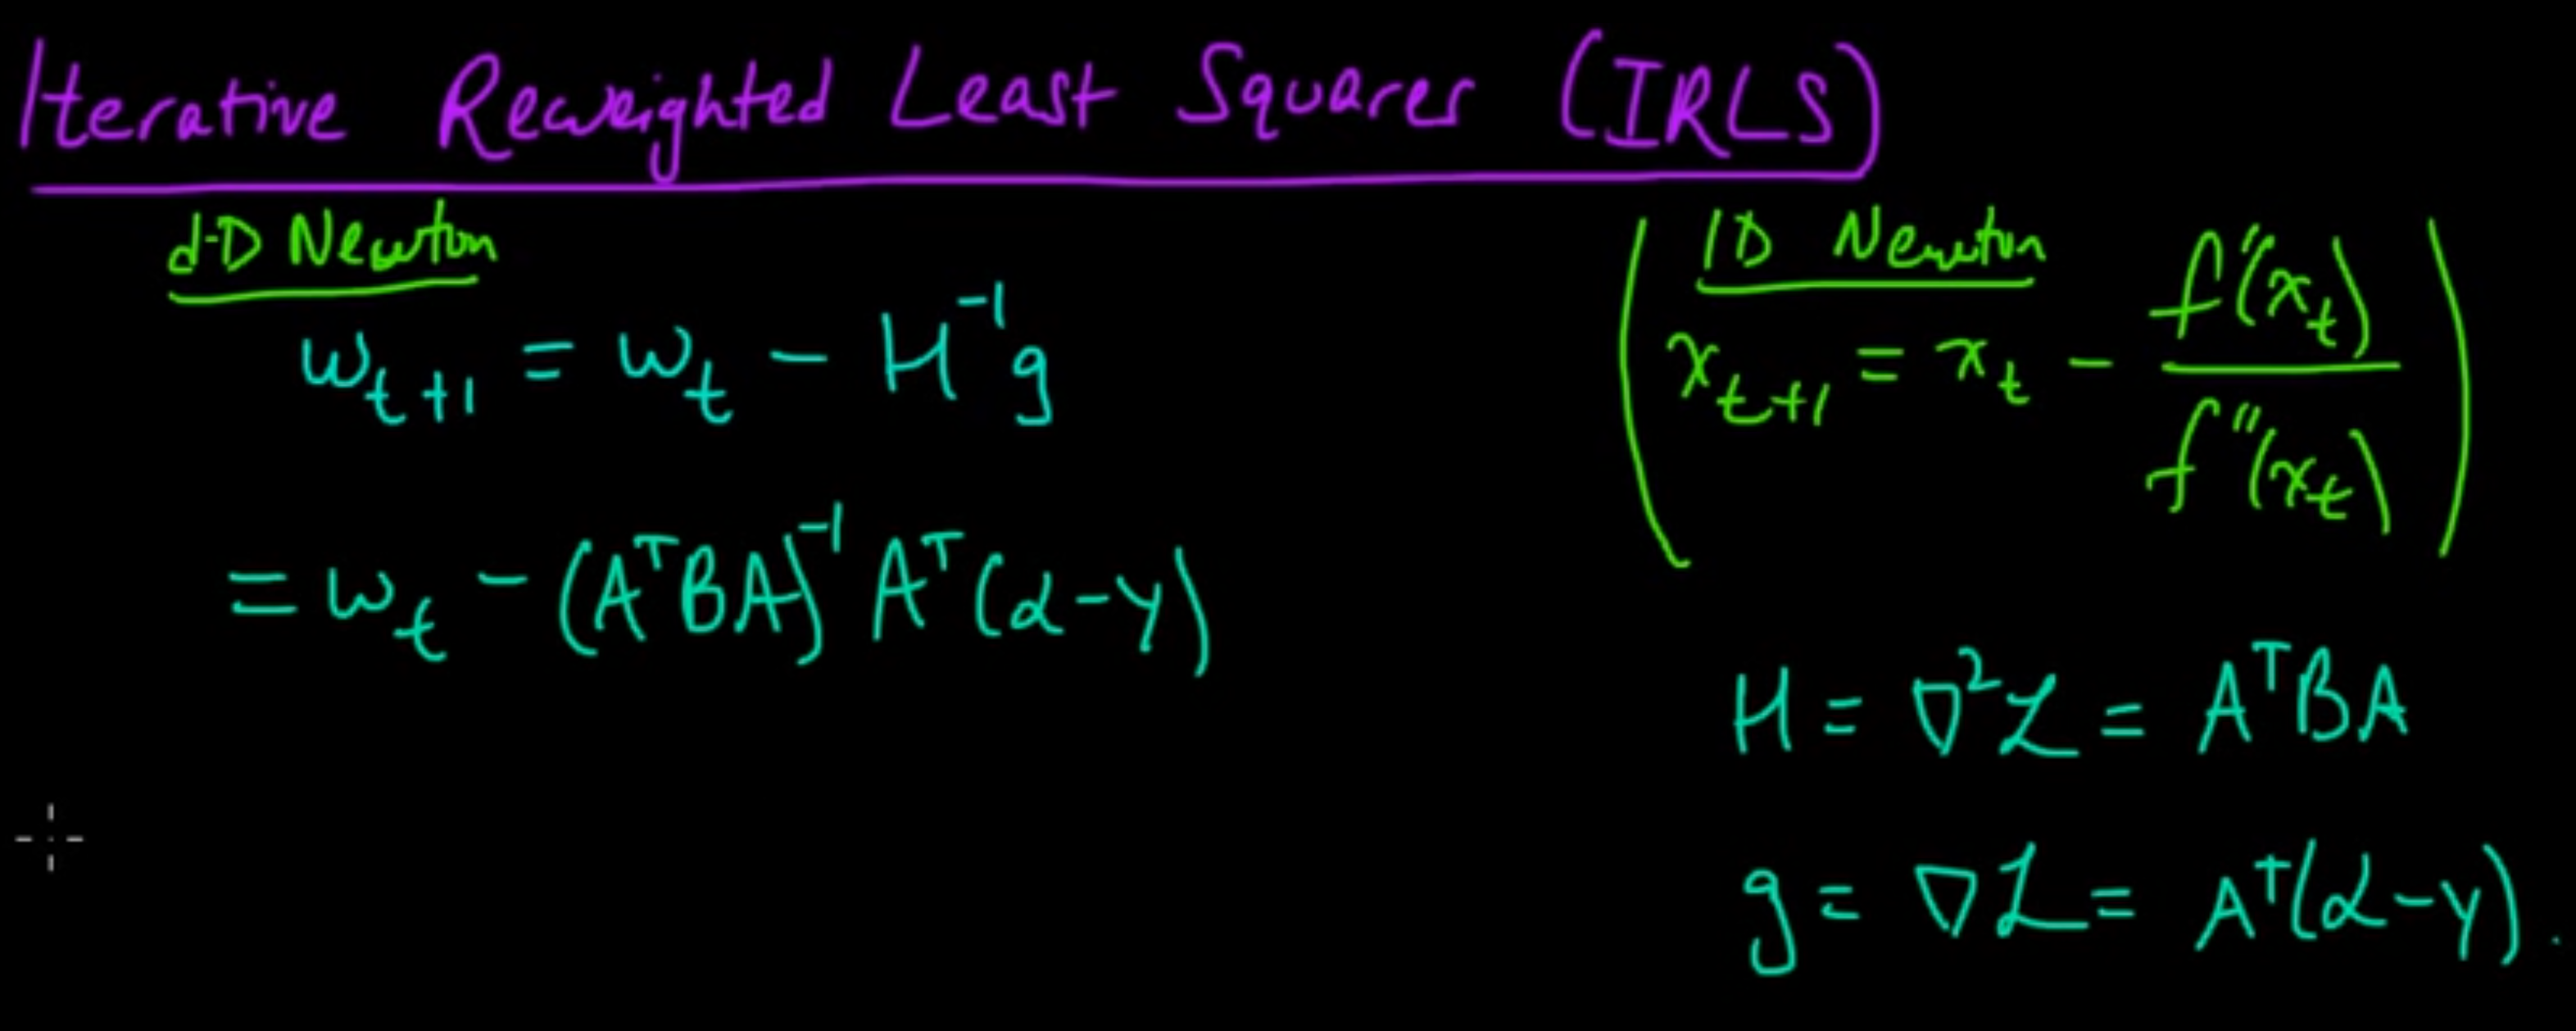 Iterative Reweighted Least Squares (IRLS)
d-D Newton
w_{t+1} = w_t − H^{-1} g
= w_t − (A^T B A)^{-1} A^T (α − y)
1D Newton
x_{t+1} = x_t − f'(x_t) / f''(x_t)
H = ∇²ℒ = A^T B A
g = ∇ℒ = A^T (α − y).